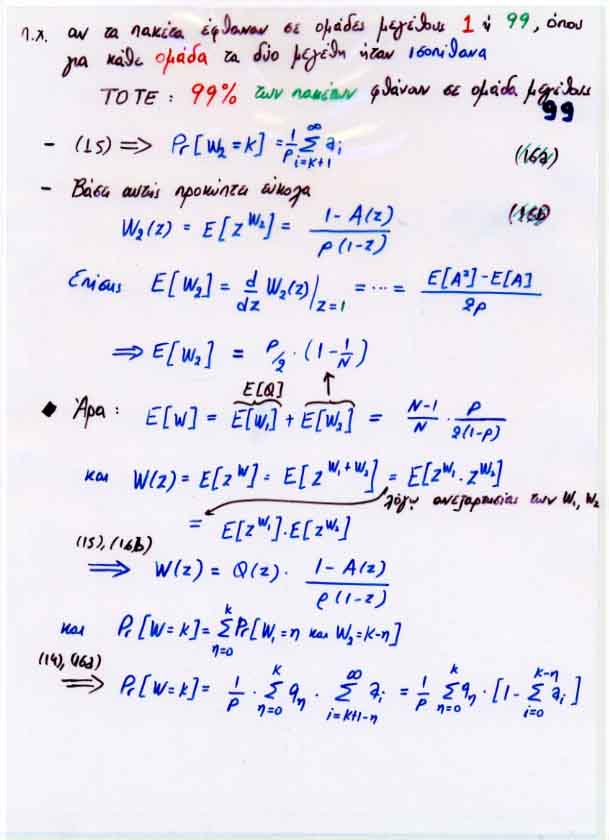 π.χ. αν τα πακέτα έφθαναν σε ομάδες μεγέθους 1 ή 99, όπου
για κάθε ομάδα τα δύο μεγέθη ήταν ισοπίθανα
ΤΟΤΕ: 99% των πακέτων φθάνουν σε ομάδα μεγέθους
99
- (15) => Pr[W₂=k] = 1/ρ Σ_{i=k+1}^{∞} a_i (16a)
- Βάσει αυτής προκύπτει εύκολα
W₂(z) = E[z^{W₂}] = (1-A(z)) / (ρ(1-z)) (16b)
Επίσης E[W₂] = d/dz W₂(z)|_{z=1} = ... = (E[A²]-E[A]) / 2ρ
=> E[W₂] = ρ/2 · (1-1/N)
E[Q] ↑
◆ Άρα: E[W] = E[W₁] + E[W₂] = (N-1)/N · ρ/(2(1-ρ))
και W(z) = E[z^W] = E[z^{W₁+W₂}] = E[z^{W₁} · z^{W₂}]
λόγω ανεξαρτησίας των W₁, W₂
= E[z^{W₁}] · E[z^{W₂}]
(15), (16b)
=> W(z) = Q(z) · (1-A(z)) / (ρ(1-z))
και Pr[W=k] = Σ_{n=0}^{k} Pr[W₁=n και W₂=k-n]
(14), (16a)
=> Pr[W=k] = 1/ρ · Σ_{n=0}^{k} q_n · Σ_{i=k+1-n}^{∞} a_i = 1/ρ Σ_{n=0}^{k} q_n · [1 - Σ_{i=0}^{k-n} a_i]